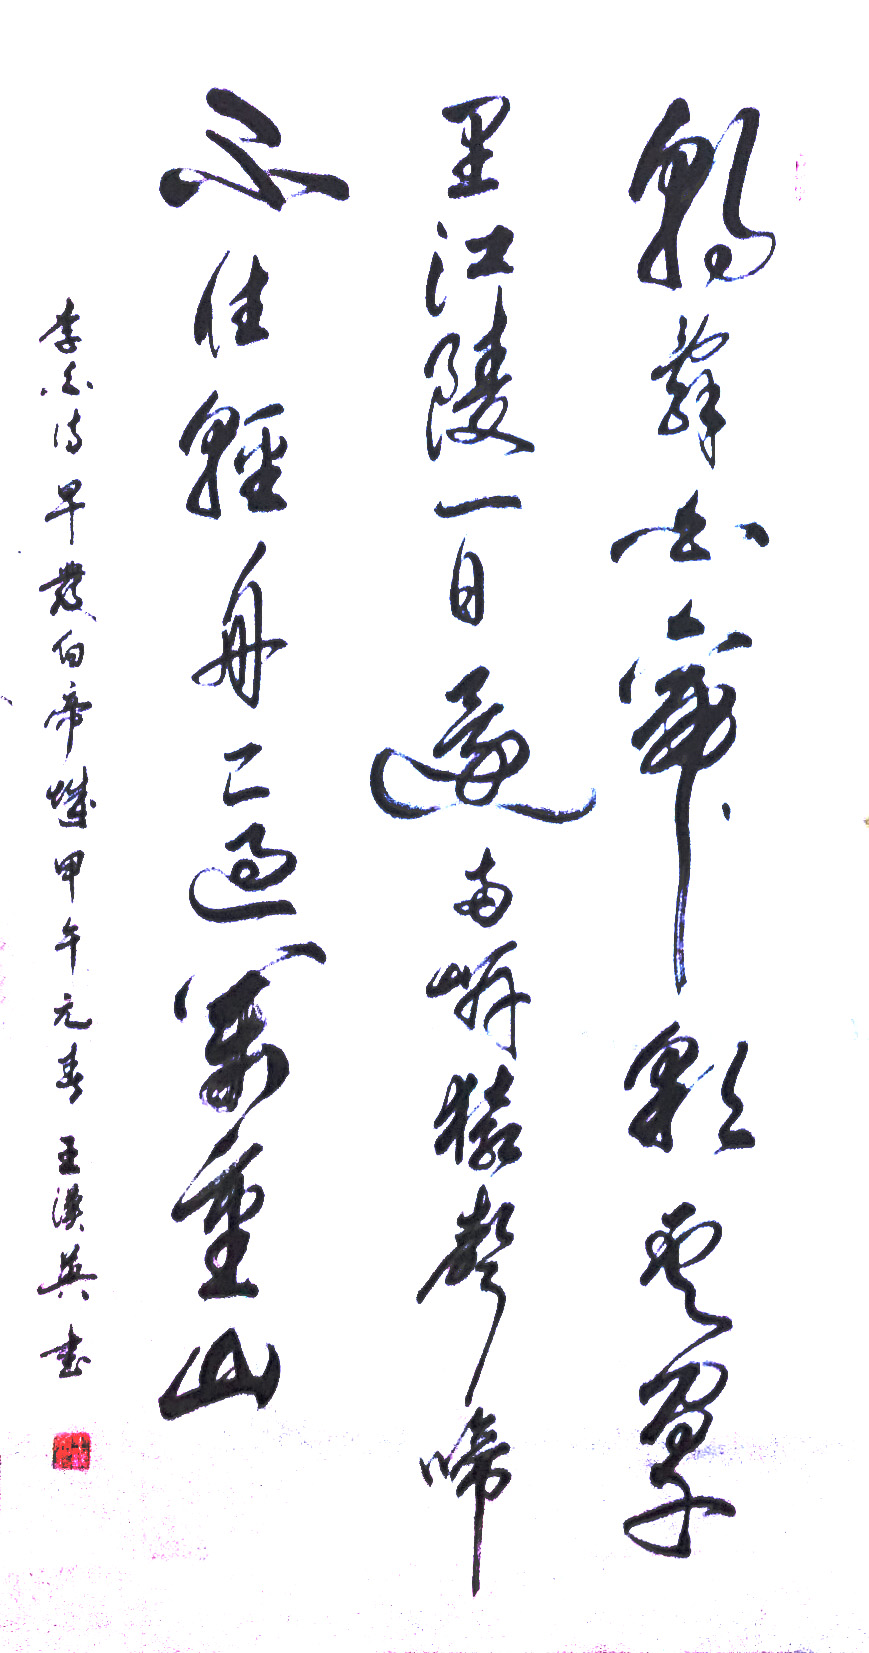 朝辭白帝彩雲間千
里江陵一日還兩岸猿聲啼
不住輕舟已過萬重山
李白詩早發白帝城甲午元春王漢英書